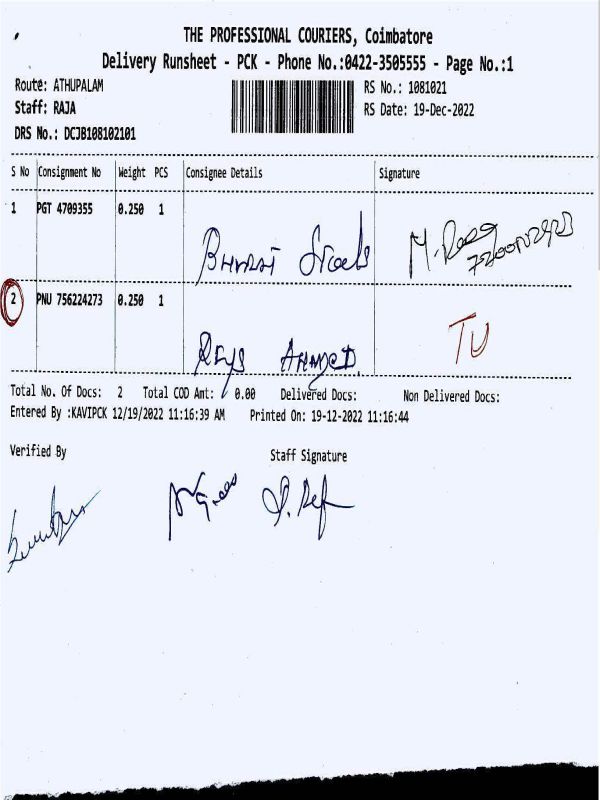 THE PROFESSIONAL COURIERS, Coimbatore
Delivery Runsheet - PCK - Phone No.:0422-3505555 - Page No.:1
Route: ATHUPALAM
RS No.: 1081021
Staff: RAJA
RS Date: 19-Dec-2022
DRS No.: DCJB108102101
S No Consignment No Weight PCS Consignee Details Signature
1 PGT 4709355 0.250 1
BHARAT
2 PNU 756224273 0.250 1
TU
AHMED
Total No. Of Docs: 2 Total COD Amt: 0.00 Delivered Docs: Non Delivered Docs:
Entered By :KAVIPCK 12/19/2022 11:16:39 AM Printed On: 19-12-2022 11:16:44
Verified By Staff Signature